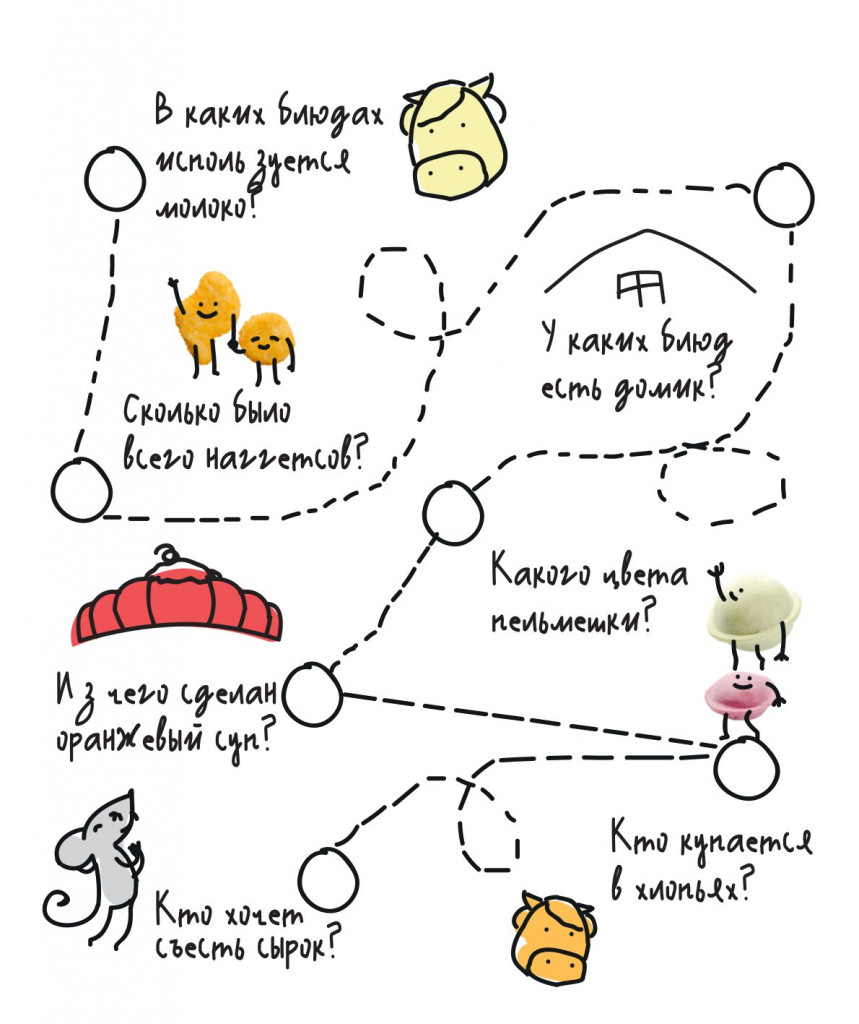 В каких блюдах
используется
молоко?
Сколько было
всего наггетсов?
У каких блюд
есть домик?
Какого цвета
пельмешки?
Из чего сделан
оранжевый суп?
Кто купается
в хлопьях?
Кто хочет
съесть сырок?